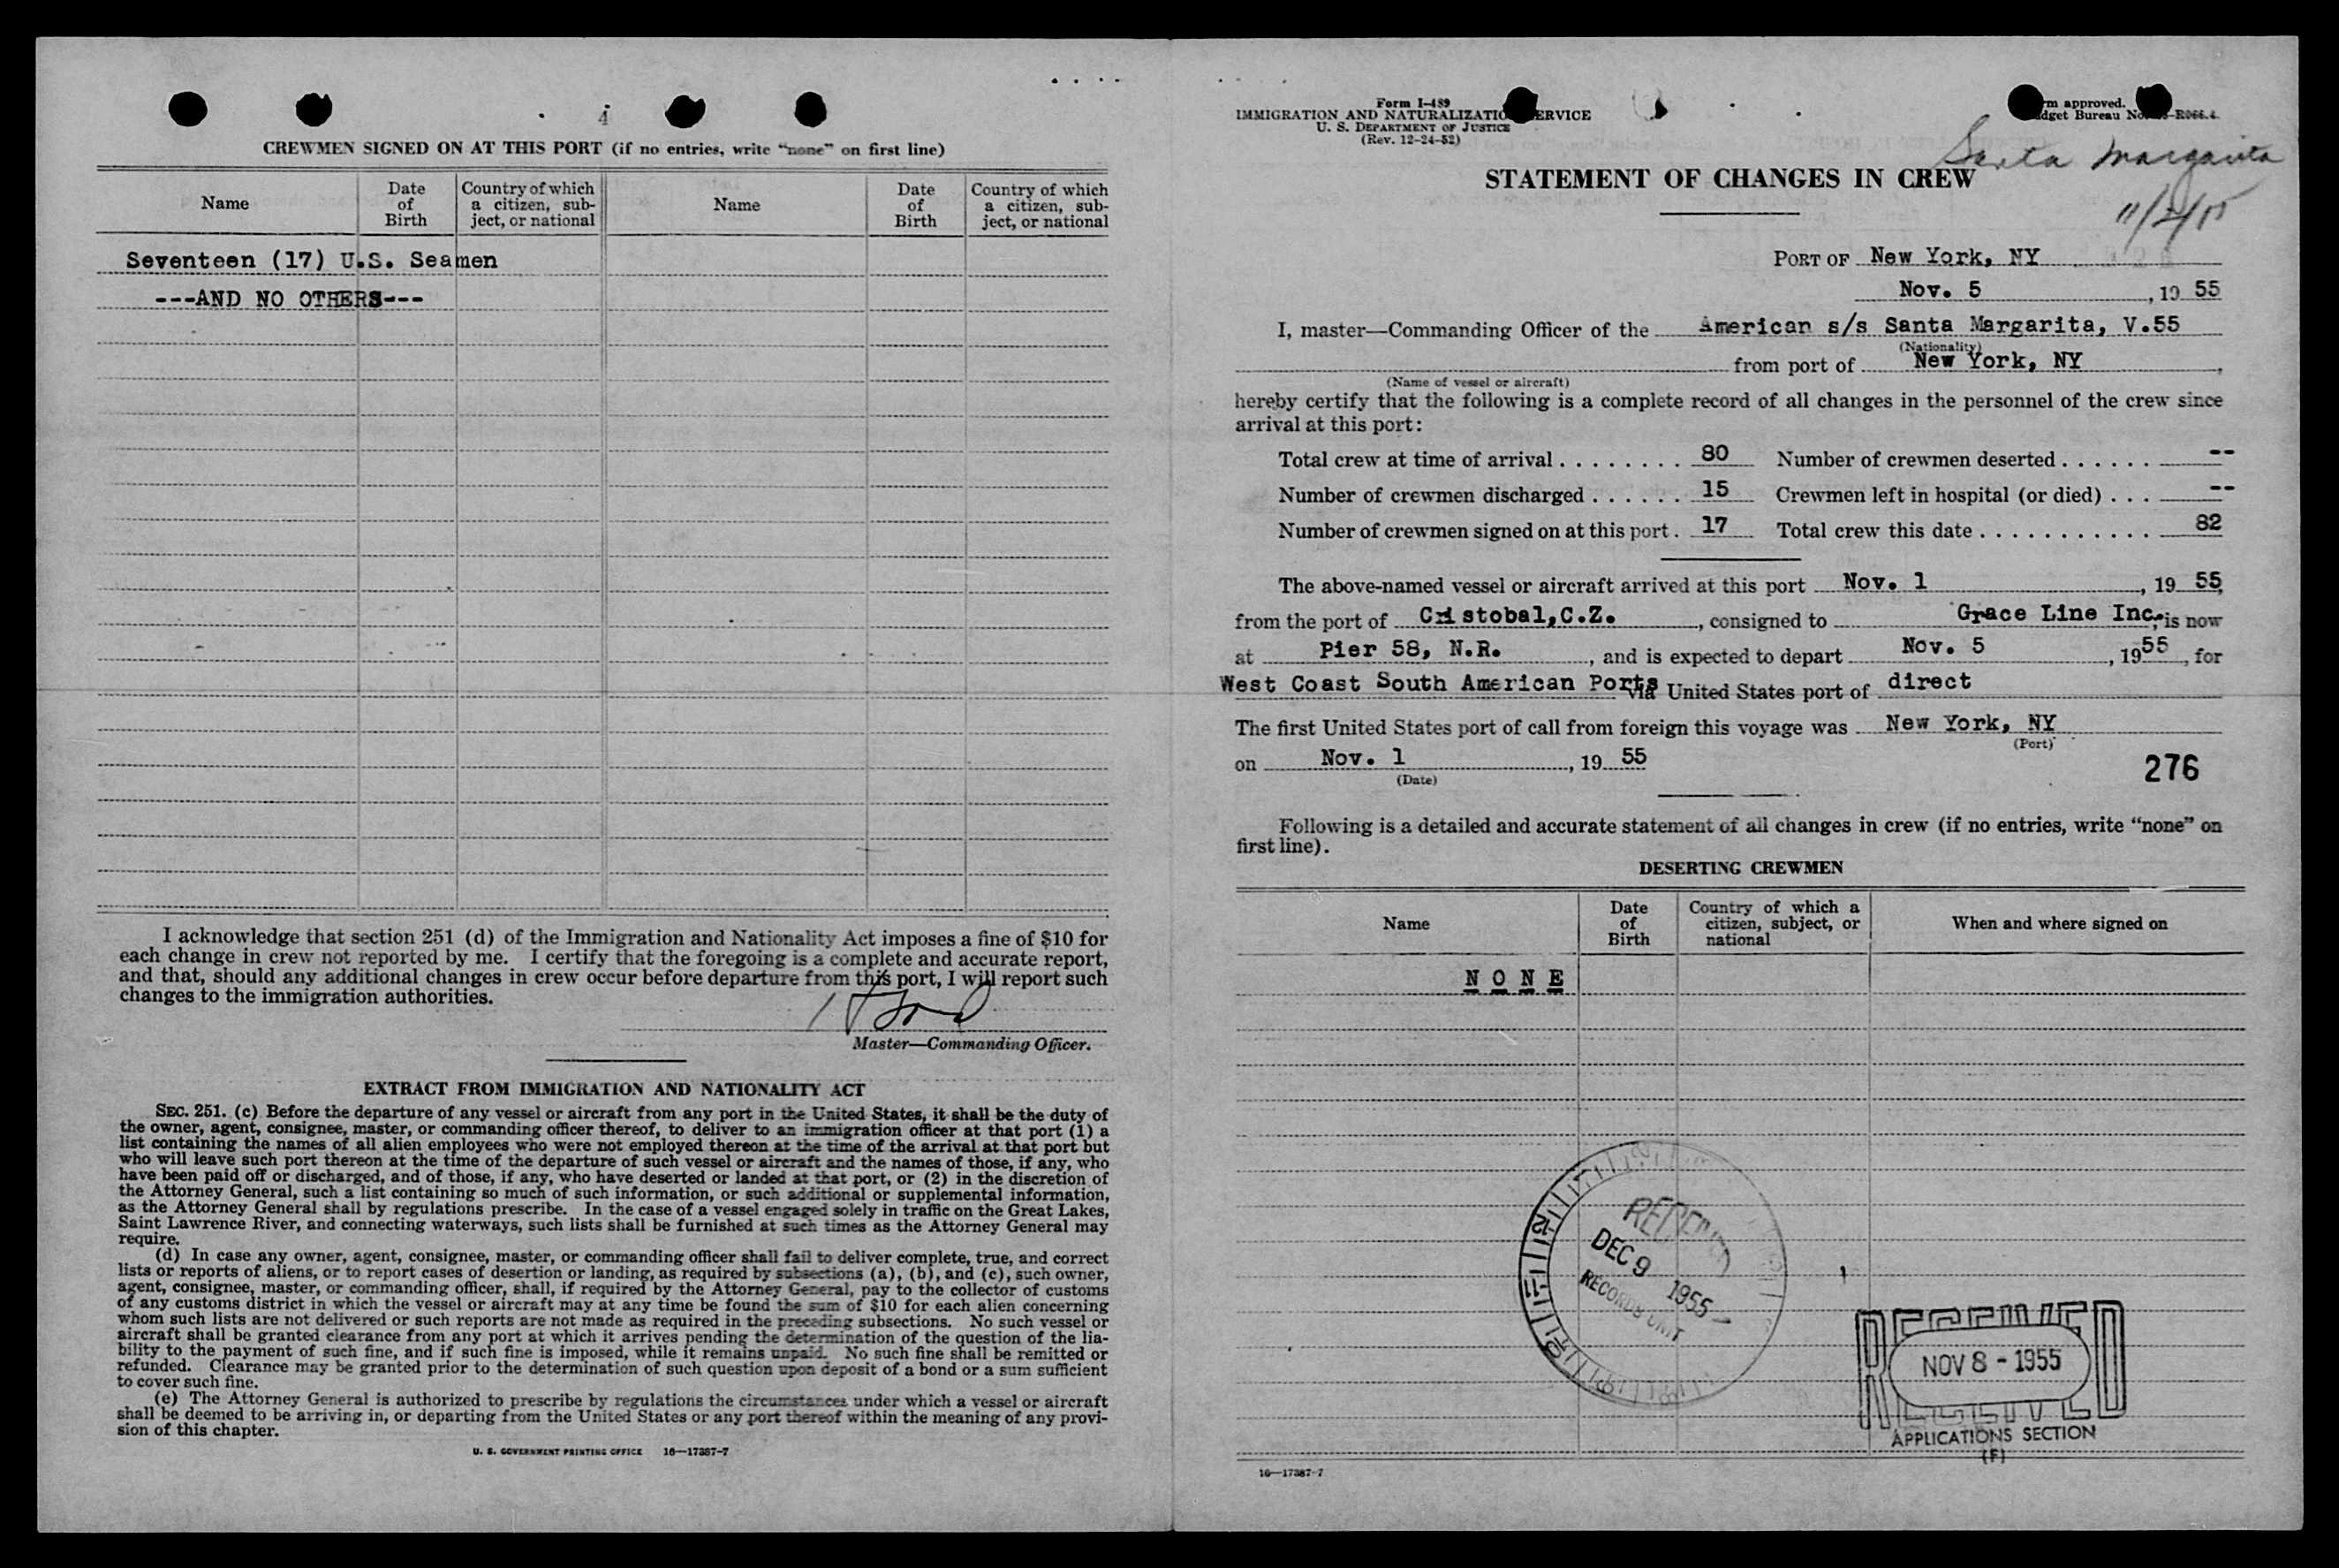 4
CREWMEN SIGNED ON AT THIS PORT (if no entries, write “none” on first line)
Name Date of Birth Country of which a citizen, subject, or national Name Date of Birth Country of which a citizen, subject, or national
Seventeen (17) U.S. Seamen
---AND NO OTHERS---
I acknowledge that section 251 (d) of the Immigration and Nationality Act imposes a fine of $10 for
each change in crew not reported by me. I certify that the foregoing is a complete and accurate report,
and that, should any additional changes in crew occur before departure from this port, I will report such
changes to the immigration authorities.
Master—Commanding Officer.
EXTRACT FROM IMMIGRATION AND NATIONALITY ACT
SEC. 251. (c) Before the departure of any vessel or aircraft from any port in the United States, it shall be the duty of
the owner, agent, consignee, master, or commanding officer thereof, to deliver to an immigration officer at that port (1) a
list containing the names of all alien employees who were not employed thereon at the time of the arrival at that port but
who will leave such port thereon at the time of the departure of such vessel or aircraft and the names of those, if any, who
have been paid off or discharged, and of those, if any, who have deserted or landed at that port, or (2) in the discretion of
the Attorney General, such a list containing so much of such information, or such additional or supplemental information,
as the Attorney General shall by regulations prescribe. In the case of a vessel engaged solely in traffic on the Great Lakes,
Saint Lawrence River, and connecting waterways, such lists shall be furnished at such times as the Attorney General may
require.
(d) In case any owner, agent, consignee, master, or commanding officer shall fail to deliver complete, true, and correct
lists or reports of aliens, or to report cases of desertion or landing, as required by subsections (a), (b), and (c), such owner,
agent, consignee, master, or commanding officer, shall, if required by the Attorney General, pay to the collector of customs
of any customs district in which the vessel or aircraft may at any time be found the sum of $10 for each alien concerning
whom such lists are not delivered or such reports are not made as required in the preceding subsections. No such vessel or
aircraft shall be granted clearance from any port at which it arrives pending the determination of the question of the lia-
bility to the payment of such fine, and if such fine is imposed, while it remains unpaid. No such fine shall be remitted or
refunded. Clearance may be granted prior to the determination of such question upon deposit of a bond or a sum sufficient
to cover such fine.
(e) The Attorney General is authorized to prescribe by regulations the circumstances under which a vessel or aircraft
shall be deemed to be arriving in, or departing from the United States or any port thereof within the meaning of any provi-
sion of this chapter.
U. S. GOVERNMENT PRINTING OFFICE 16—17387-7
Form I-489
IMMIGRATION AND NATURALIZATION SERVICE
U. S. DEPARTMENT OF JUSTICE
(Rev. 12-24-52)
approved.
Bureau No. R066.4
Santa Margarita
STATEMENT OF CHANGES IN CREW
PORT OF New York, NY
Nov. 5, 19 55
I, master—Commanding Officer of the American s/s Santa Margarita, V.55
(Nationality)
from port of New York, NY,
(Name of vessel or aircraft)
hereby certify that the following is a complete record of all changes in the personnel of the crew since
arrival at this port:
Total crew at time of arrival . . . . . . . . 80 Number of crewmen deserted . . . . . . --
Number of crewmen discharged . . . . . . 15 Crewmen left in hospital (or died) . . . --
Number of crewmen signed on at this port . 17 Total crew this date . . . . . . . . . . . 82
The above-named vessel or aircraft arrived at this port Nov. 1, 19 55,
from the port of Cristobal,C.Z., consigned to Grace Line Inc., is now
at Pier 58, N.R., and is expected to depart Nov. 5, 19 55, for
West Coast South American Ports via United States port of direct
The first United States port of call from foreign this voyage was New York, NY
(Port)
on Nov. 1, 19 55
(Date)
276
Following is a detailed and accurate statement of all changes in crew (if no entries, write “none” on
first line).
DESERTING CREWMEN
Name Date of Birth Country of which a citizen, subject, or national When and where signed on
N O N E
RECEIVED
DEC 9 1955
RECORDS UNIT
RECEIVED
NOV 8 - 1955
RECEIVED
APPLICATIONS SECTION
(F)
16—17387-7